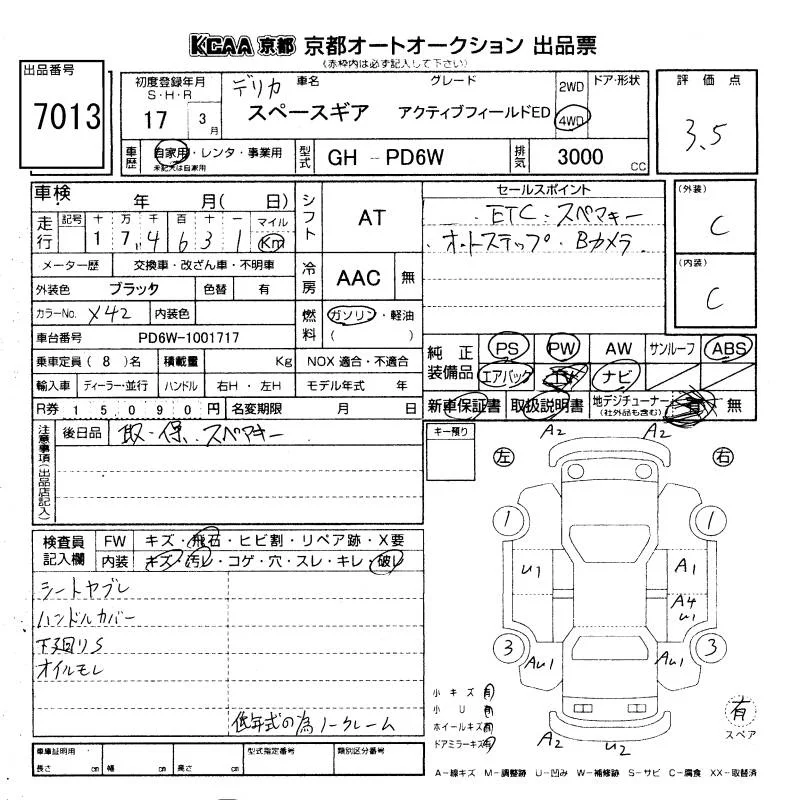 KCAA 京都 京都オートオークション 出品票
(赤枠内は必ず記入して下さい)
出品番号
7013
初度登録年月
S・H・R
17 3月
車名
デリカ
スペースギア
グレード
アクティブフィールドED
2WD
4WD
ドア・形状
評価点
3.5
車歴
自家用・レンタ・事業用
未記入は自家用
型式 GH - PD6W
排気 3000 CC
車検 年 月( 日)
シフト AT
セールスポイント
・ETC・スペマキー
・オートステップ・Bカメラ
(外装)
C
(内装)
C
走行 記号 十 万 千 百 十 一 マイル
1 7 4 6 3 1 Km
メーター歴 交換車・改ざん車・不明車
冷房 AAC 無
外装色 ブラック 色替 有
カラーNo. X42 内装色
燃料 ガソリン・軽油
( )
車台番号 PD6W-1001717
乗車定員 ( 8 ) 名 積載量 Kg NOX 適合・不適合
輸入車 ディーラー・並行 ハンドル 右H・左H モデル年式 年
R券 15090円 名変期限 月 日
純正装備品 PS PW AW サンルーフ ABS
エアバック TV ナビ
新車保証書 取扱説明書 地デジチューナー(社外品も含む) 有 無
注意事項(出品店記入)
後日品 取・保・スペアキー
キー預り
左 右
A2 A2
1 1
U1 A1
A4
U1
3 3
AU1 AU1
A2 U2
検査員記入欄
FW キズ・飛石・ヒビ割・リペア跡・X要
内装 キズ・汚レ・コゲ・穴・スレ・キレ・破レ
シートヤブレ
ハンドルカバー
下廻りS
オイルモレ
低年式の為ノークレーム
小キズ 有
小U 有
ホイールキズ 有
ドアミラーキズ 有
有
スペア
車庫証明用
長さ cm 幅 cm 高さ cm
型式指定番号
類別区分番号
A-線キズ M-調整跡 U-凹み W-補修跡 S-サビ C-腐食 XX-取替済